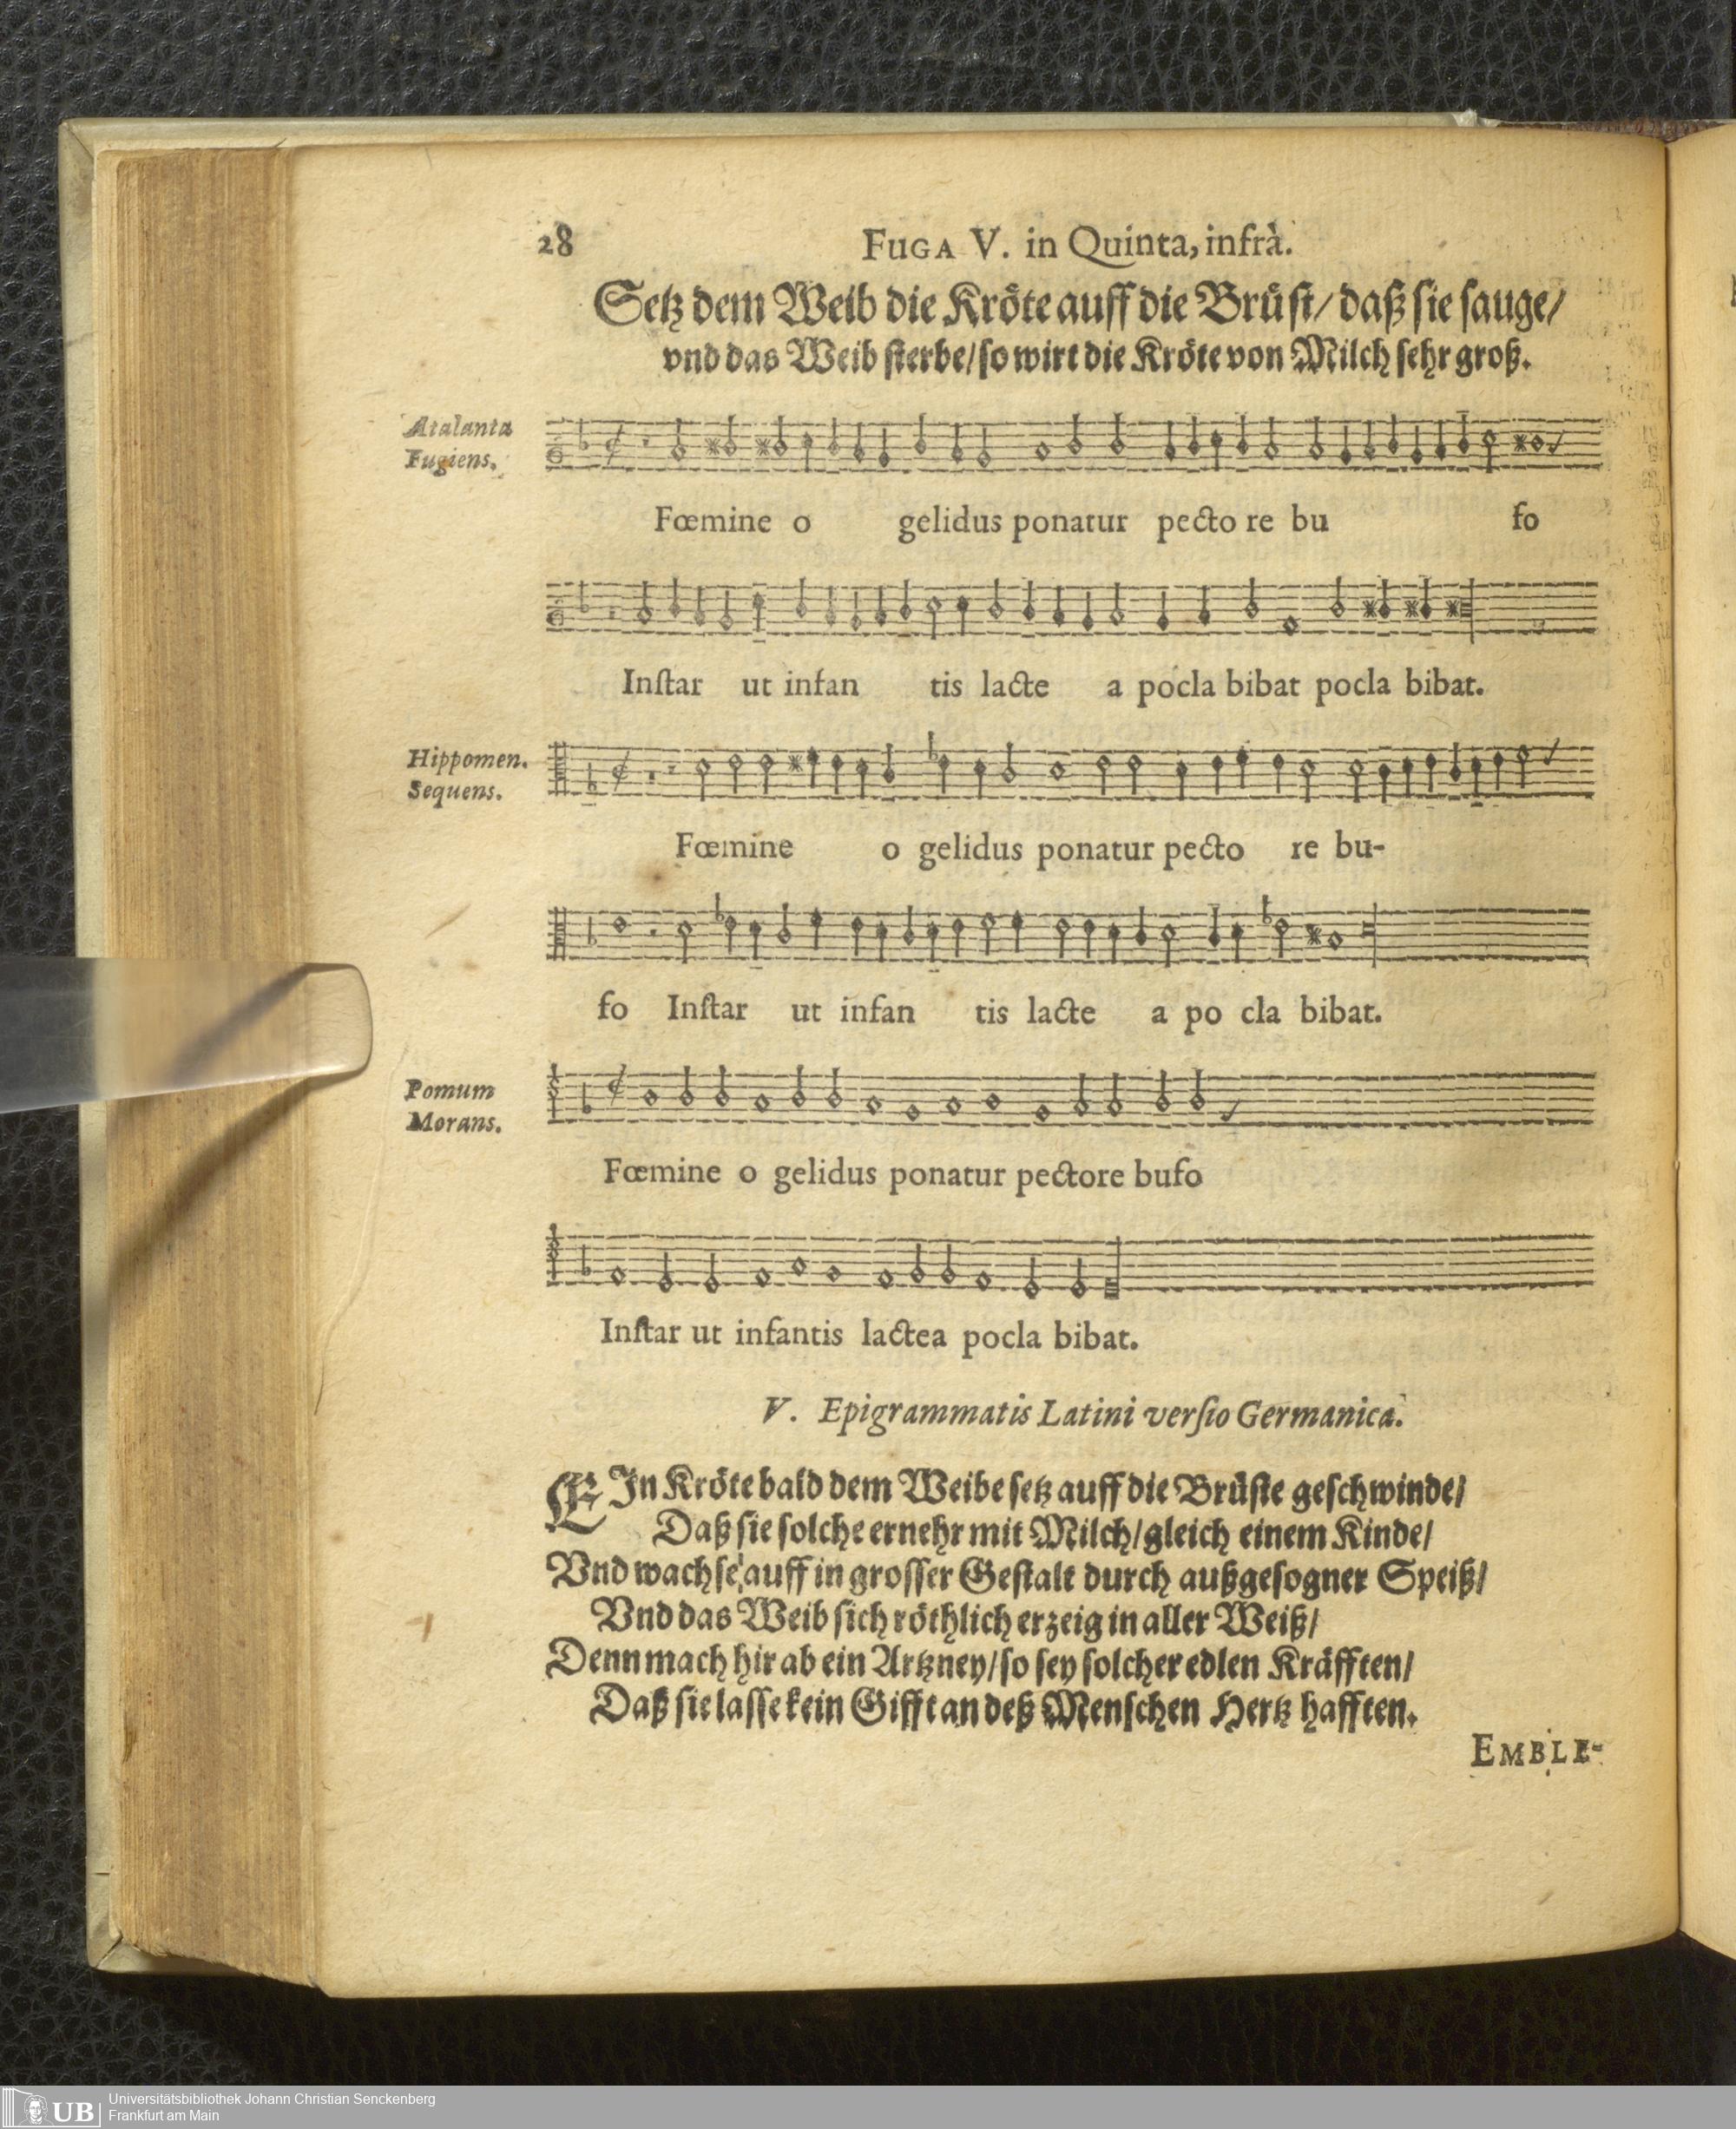 28 FUGA V. in Quinta, infrà.
Setz dem Weib die Kröte auff die Brüst/ daß sie sauge/
vnd das Weib sterbe/ so wirt die Kröte von Milch sehr groß.
Atalanta
Fugiens.
Fœmine o gelidus ponatur pecto re bu fo
Inſtar ut infan tis lacte a pocla bibat pocla bibat.
Hippomen.
Sequens.
Fœmine o gelidus ponatur pecto re bu-
fo Inſtar ut infan tis lacte a po cla bibat.
Pomum
Morans.
Fœmine o gelidus ponatur pectore bufo
Inſtar ut infantis lactea pocla bibat.
V. Epigrammatis Latini verſio Germanica.
EIn Kröte bald dem Weibe ſetz auff die Brüſte geſchwinde/
Daß ſie ſolche ernehr mit Milch/ gleich einem Kinde/
Vnd wachſe auff in groſſer Geſtalt durch außgeſogner Speiß/
Vnd das Weib ſich röthlich erzeig in aller Weiß/
Denn mach hir ab ein Artzney/ ſo ſey ſolcher edlen Kräfften/
Daß ſie laſſe kein Gifft an deß Menſchen Hertz hafften.
EMBLE-
UB Universitätsbibliothek Johann Christian Senckenberg
Frankfurt am Main